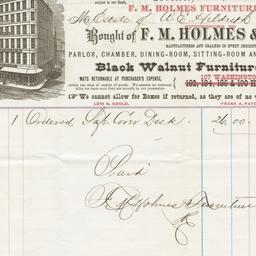 subject to our Draft,
F. M. HOLMES FURNITURE
M Estate of W. E. Gildreth
Bought of F. M. HOLMES &
MANUFACTURERS AND DEALERS IN EVERY DESCRIPT
PARLOR, CHAMBER, DINING-ROOM, SITTING-ROOM AN
Black Walnut Furniture
MATS RETURNABLE AT PURCHASER'S EXPENSE,
107 WASHINGTO
☞ We cannot allow for Boxes if returned, as they are of no v
LEVI S. GOULD. FRANK A. PATC
1 Ordered Desk. 26.00
Paid
F M Holmes Furniture